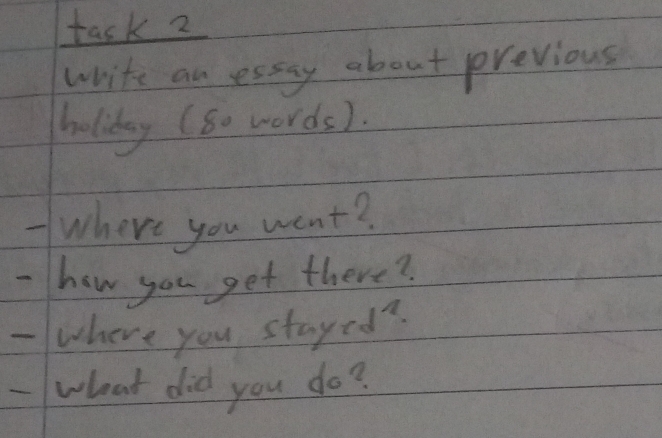 task 2
write an essay about previous
holiday (80 words).
- Where you went?
- how you get there?
- where you stayed?
- what did you do?